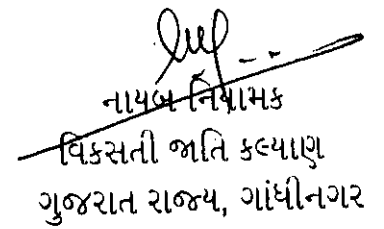 નાયબ નિયામક
વિકસતી જાતિ કલ્યાણ
ગુજરાત રાજ્ય, ગાંધીનગર